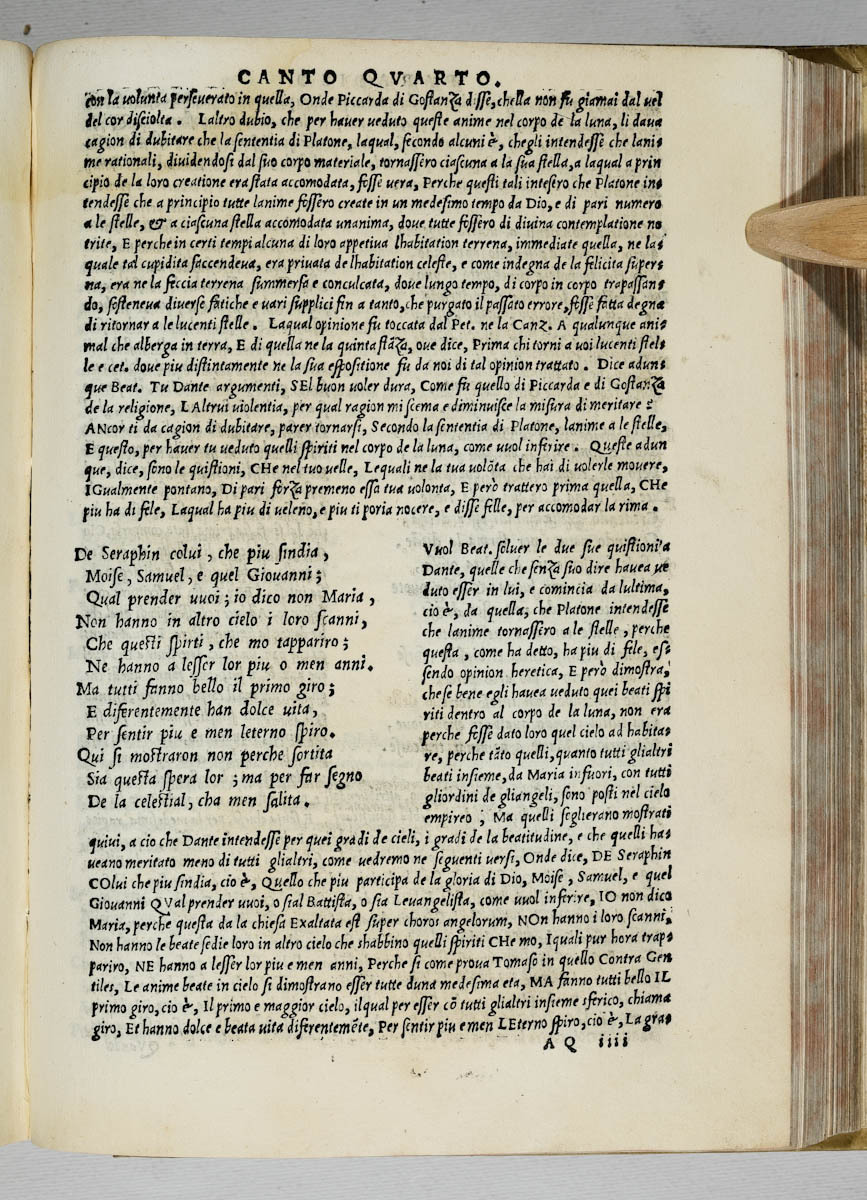 CANTO QVARTO.
con la uolunta perseuerato in quella, Onde Piccarda di Gostanza disse, chella non fu giamai dal uel
del cor disciolta. Laltro dubio, che per hauer ueduto queste anime nel corpo de la luna, li daua
cagion di dubitare che la sententia di Platone, laqual, secondo alcuni è, chegli intendesse che lani-
me rationali, diuidendosi dal suo corpo materiale, tornassero ciascuna a la sua stella, a laqual a prin
cipio de la loro creatione era stata accomodata, fosse uera, Perche questi tali intesero che Platone in-
tendesse che a principio tutte lanime fossero create in un medesimo tempo da Dio, e di pari numero
a le stelle, & a ciascuna stella accomodata unanima, doue tutte fossero di diuina contemplatione no
trite, E perche in certi tempi alcuna di loro appetiua lhabitation terrena, immediate quella, ne la-
quale tal cupidita saccendeua, era priuata de lhabitation celeste, e come indegna de la felicita super-
na, era ne la feccia terrena summersa e conculcata, doue lungo tempo, di corpo in corpo trapassan-
do, sosteneua diuerse fatiche e uari supplici fin a tanto, che purgato il passato errore, fosse fatta degna
di ritornar a le lucenti stelle. Laqual opinione fu toccata dal Pet. ne la Canz. A qualunque ani-
mal che alberga in terra, E di quella ne la quinta stāza, oue dice, Prima chi torni a uoi lucenti stel-
le e cet. doue piu distintamente ne la sua espositione fu da noi di tal opinion trattato. Dice adun-
que Beat. Tu Dante argumenti, SEl buon uoler dura, Come fu quello di Piccarda e di Gostanza
de la religione, LAltrui uiolentia, per qual ragion mi scema e diminuisce la misura di meritare?
ANcor ti da cagion di dubitare, parer tornarsi, Secondo la sententia di Platone, lanime a le stelle,
E questo, per hauer tu ueduto quelli spiriti nel corpo de la luna, come uuol inferire. Queste adun
que, dice, sono le quistioni, CHe nel tuo uelle, Lequali ne la tua volōta che hai di uolerle mouere,
IGualmente pontano, Di pari forza premeno essa tua uolonta, E però trattero prima quella, CHe
piu ha di fele, Laqual ha piu di ueleno, e piu ti poria nocere, e disse felle, per accomodar la rima.
De Seraphin colui, che piu sindia,
Moise, Samuel, e quel Giouanni;
Qual prender uuoi; io dico non Maria,
Non hanno in altro cielo i loro scanni,
Che questi spirti, che mo tappariro;
Ne hanno a lesser lor piu o men anni.
Ma tutti fanno bello il primo giro;
E diferentemente han dolce uita,
Per sentir piu e men leterno spiro.
Qui si mostraron non perche sortita
Sia questa spera lor; ma per far segno
De la celestial, cha men salita.
Vuol Beat. soluer le due sue quistioni a
Dante, quelle che senza suo dire hauea ue
duto esser in lui, e comincia da lultima,
cio è, da quella, che Platone intendesse
che lanime tornassero a le stelle, perche
questa, come ha detto, ha piu di fele, es-
sendo opinion heretica, E però dimostra,
che se bene egli hauea ueduto quei beati spi
riti dentro al corpo de la luna, non era
perche fosse dato loro quel cielo ad habita-
re, perche tāto quelli, quanto tutti glialtri
beati insieme, da Maria infuori, con tutti
gliordini de gliangeli, sono posti nel cielo
empireo; Ma quelli seglierano mostrati
quiui, a cio che Dante intendesse per quei gradi de cieli, i gradi de la beatitudine, e che quelli ha-
ueano meritato meno di tutti glialtri, come uedremo ne seguenti uersi, Onde dice, DE Seraphin
COlui che piu sindia, cio è, Quello che piu participa de la gloria di Dio, Moise, Samuel, e quel
Giouanni QVal prender uuoi, o sial Battista, o sia Leuangelista, come uuol inferire, IO non dico
Maria, perche questa da la chiesa Exaltata est super choros angelorum, NOn hanno i loro scanni,
Non hanno le beate sedie loro in altro cielo che shabbino quelli spiriti CHe mo, Iquali pur hora trap-
pariro, NE hanno a lesser lor piu e men anni, Perche si come proua Tomaso in quello Contra Gen
tiles, Le anime beate in cielo si dimostrano esser tutte duna medesima eta, MA fanno tutti bello IL
primo giro, cio è, Il primo e maggior cielo, ilqual per esser cō tutti glialtri insieme sferico, chiama
giro, Et hanno dolce e beata uita diferentemēte, Per sentir piu e men LEterno spiro, cio è, La gra-
A Q iiii